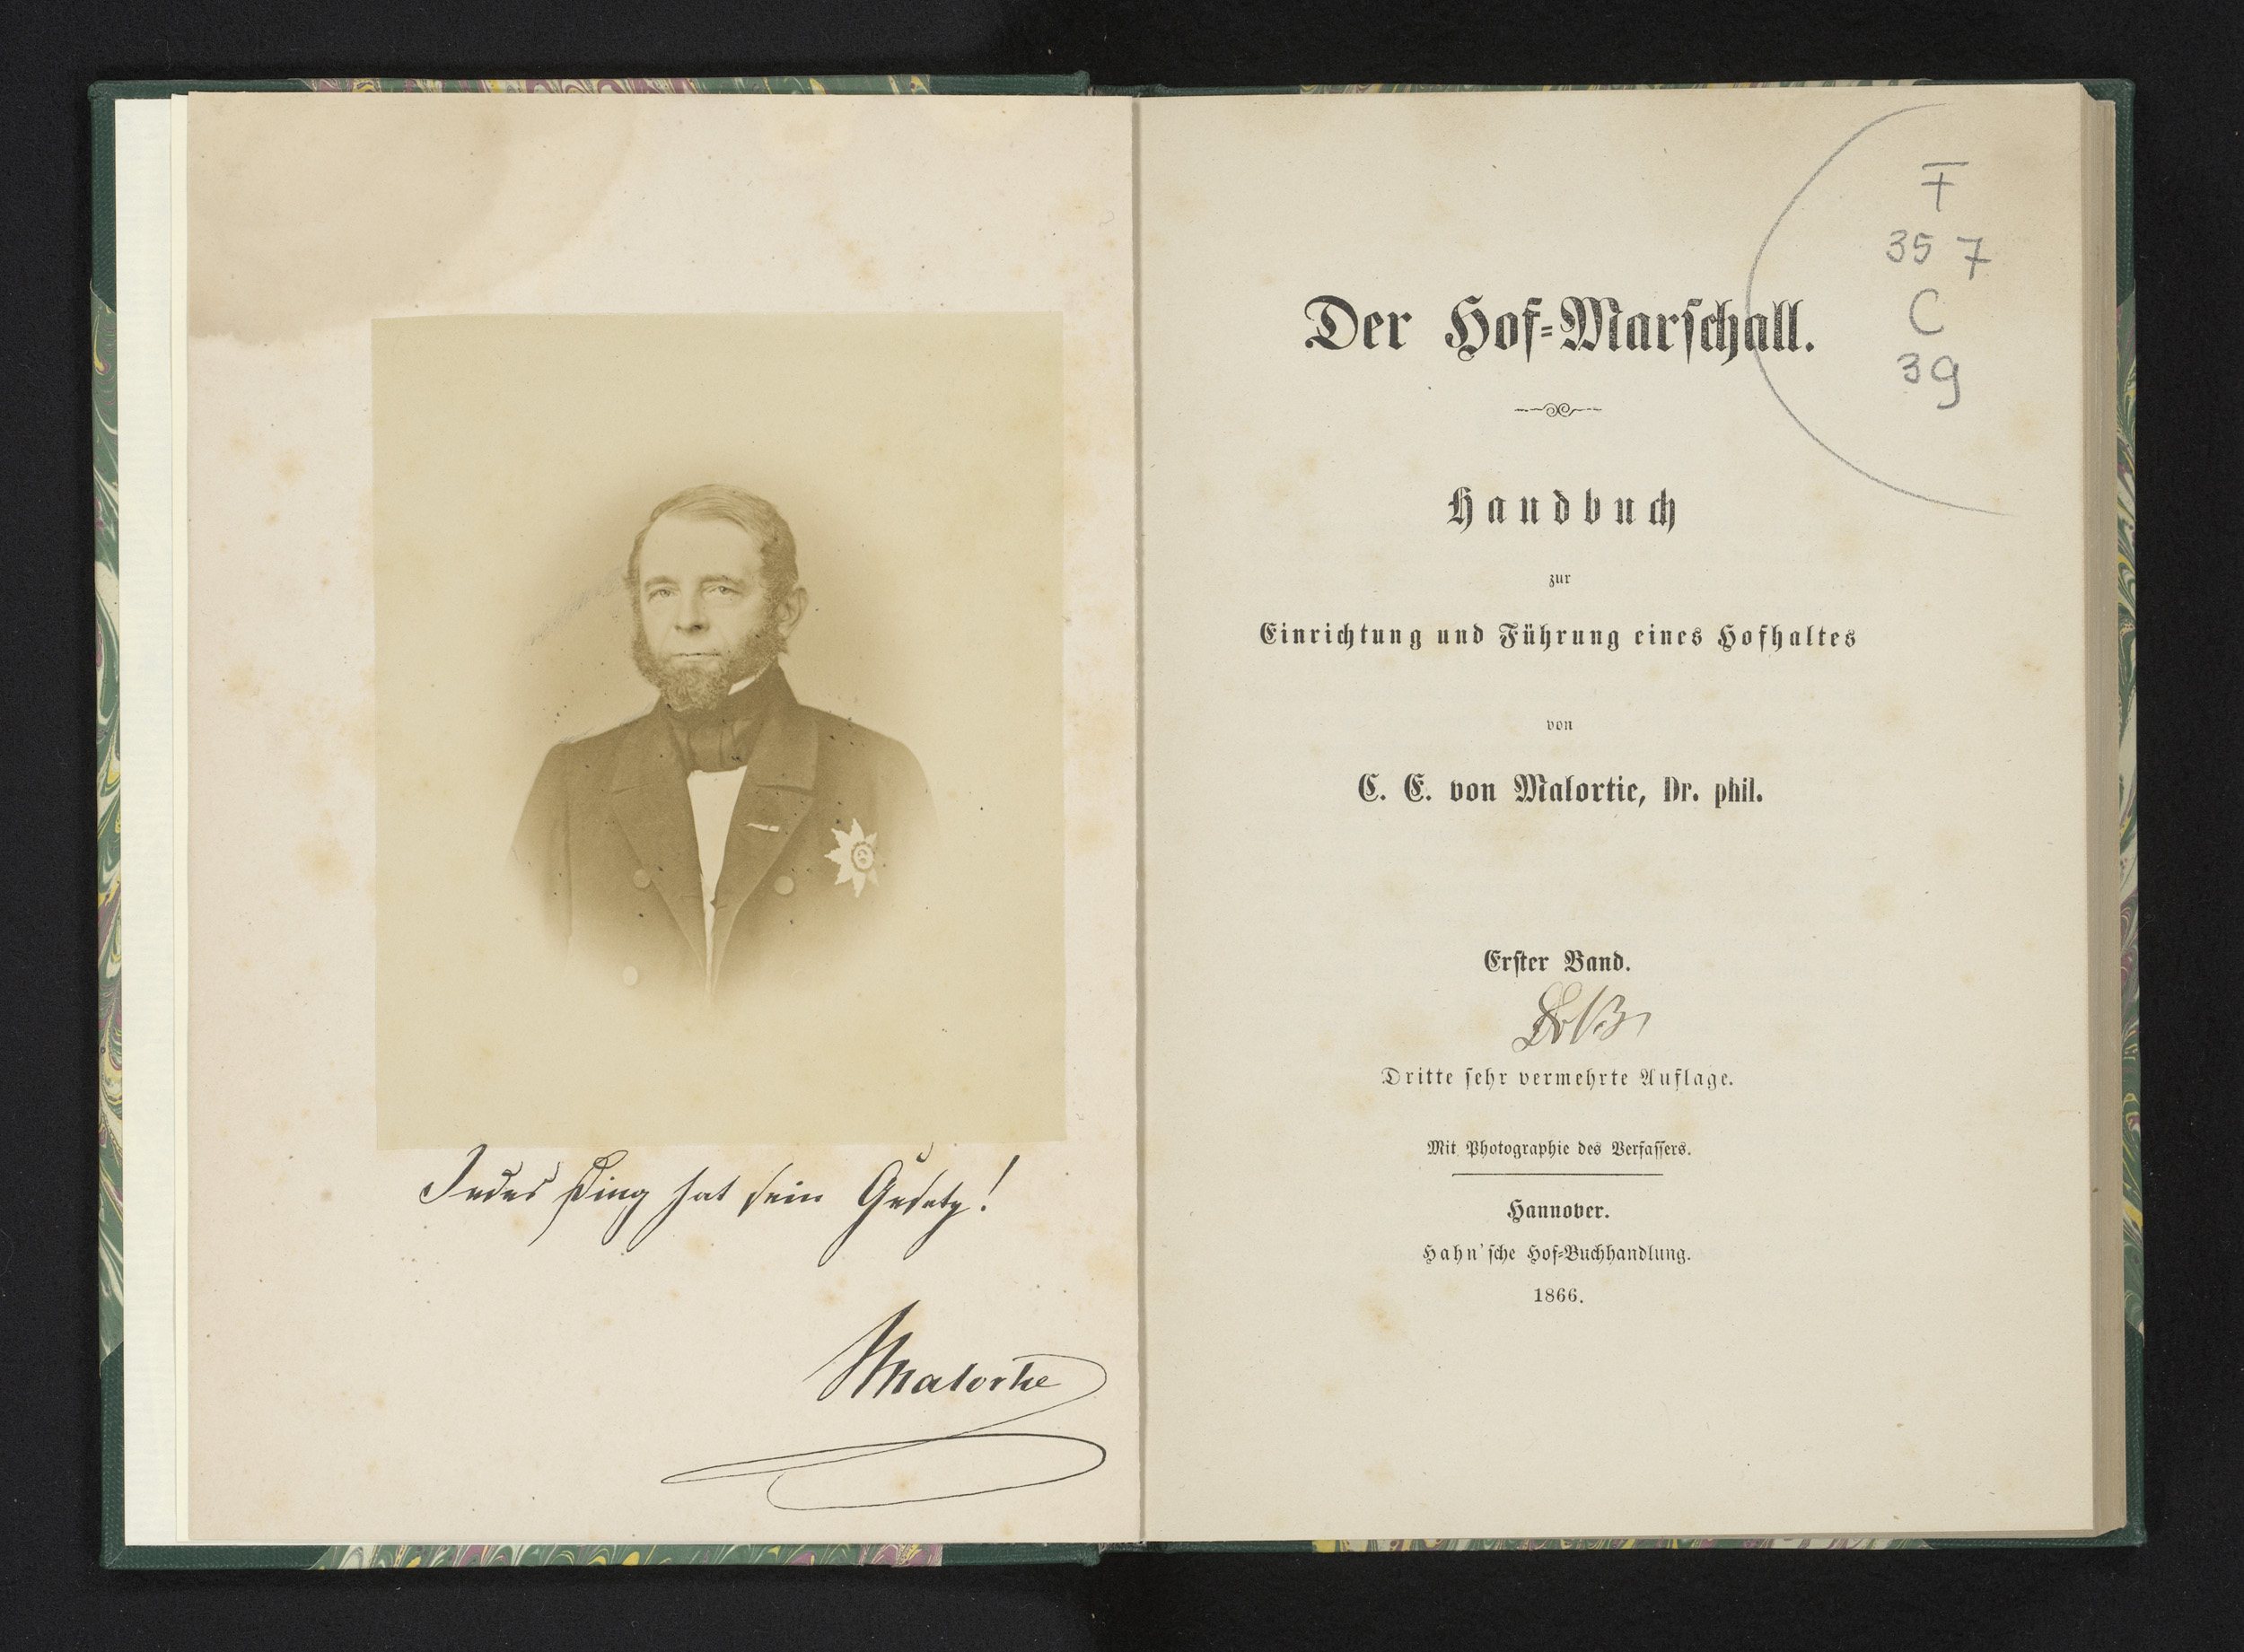 Jedes Ding hat sein Gesetz!
Malortie
F
357
C
39
Der Hof-Marschall.
Handbuch
zur
Einrichtung und Führung eines Hofhaltes
von
C. E. von Malortie, Dr. phil.
Erster Band.
Dritte sehr vermehrte Auflage.
Mit Photographie des Verfassers.
Hannover.
Hahn'sche Hof-Buchhandlung.
1866.